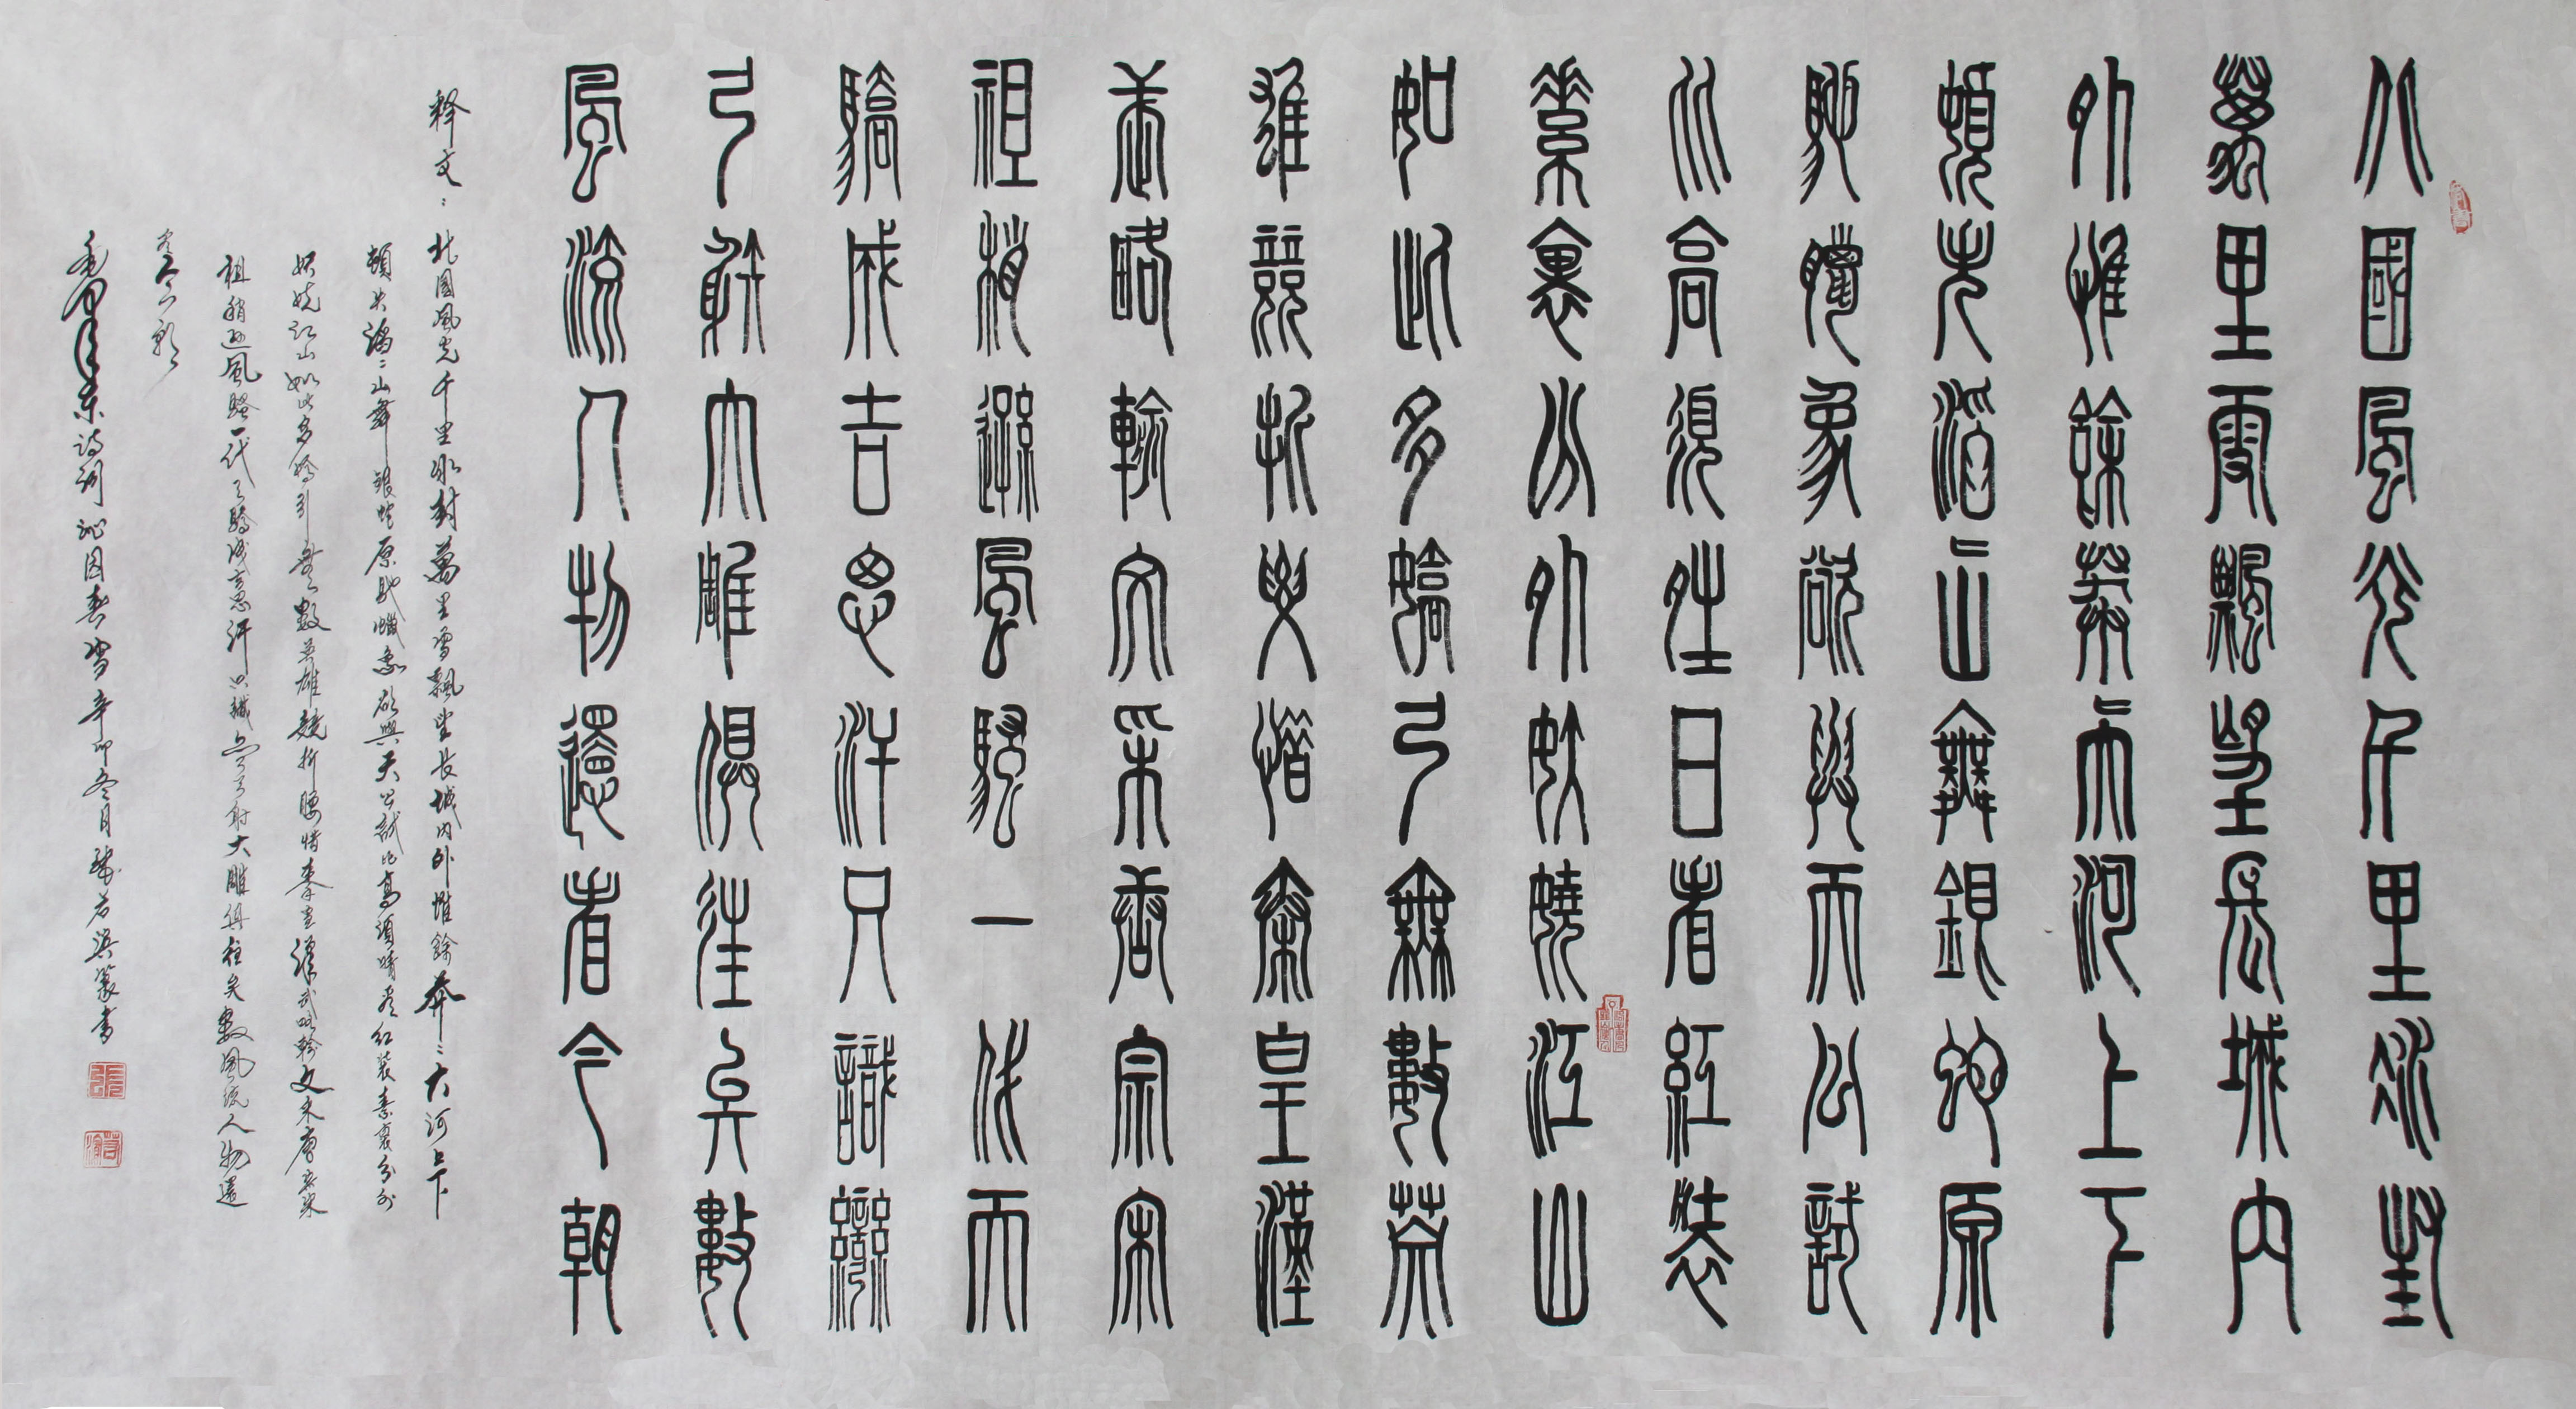 北國風光千里冰封
萬里雪飄望長城內
外惟餘莽〻大河上下
頓失滔〻山舞銀蛇原
馳臘象欲與天公試
比高須晴日看紅裝
素裹分外妖嬈江山
如此多嬌引無數英
雄競折腰惜秦皇漢
武略輸文采唐宗宋
祖稍遜風騷一代天
驕成吉思汗只識彎
弓射大雕俱往矣數
風流人物還看今朝
释文：北國風光千里冰封萬里雪飄望長城內外惟餘莽〻大河上下
頓失滔〻山舞銀蛇原馳蠟象欲與天公試比高須晴看红装素裹分外
妖嬈江山如此多嬌引無數英雄競折腰惜秦皇漢武略輸文采唐宗宋
祖稍遜風騷一代天驕成吉思汗只識彎弓射大雕俱往矣數風流人物還
看今朝
毛澤東诗词沁园春雪辛卯冬月張若濱篆書
張